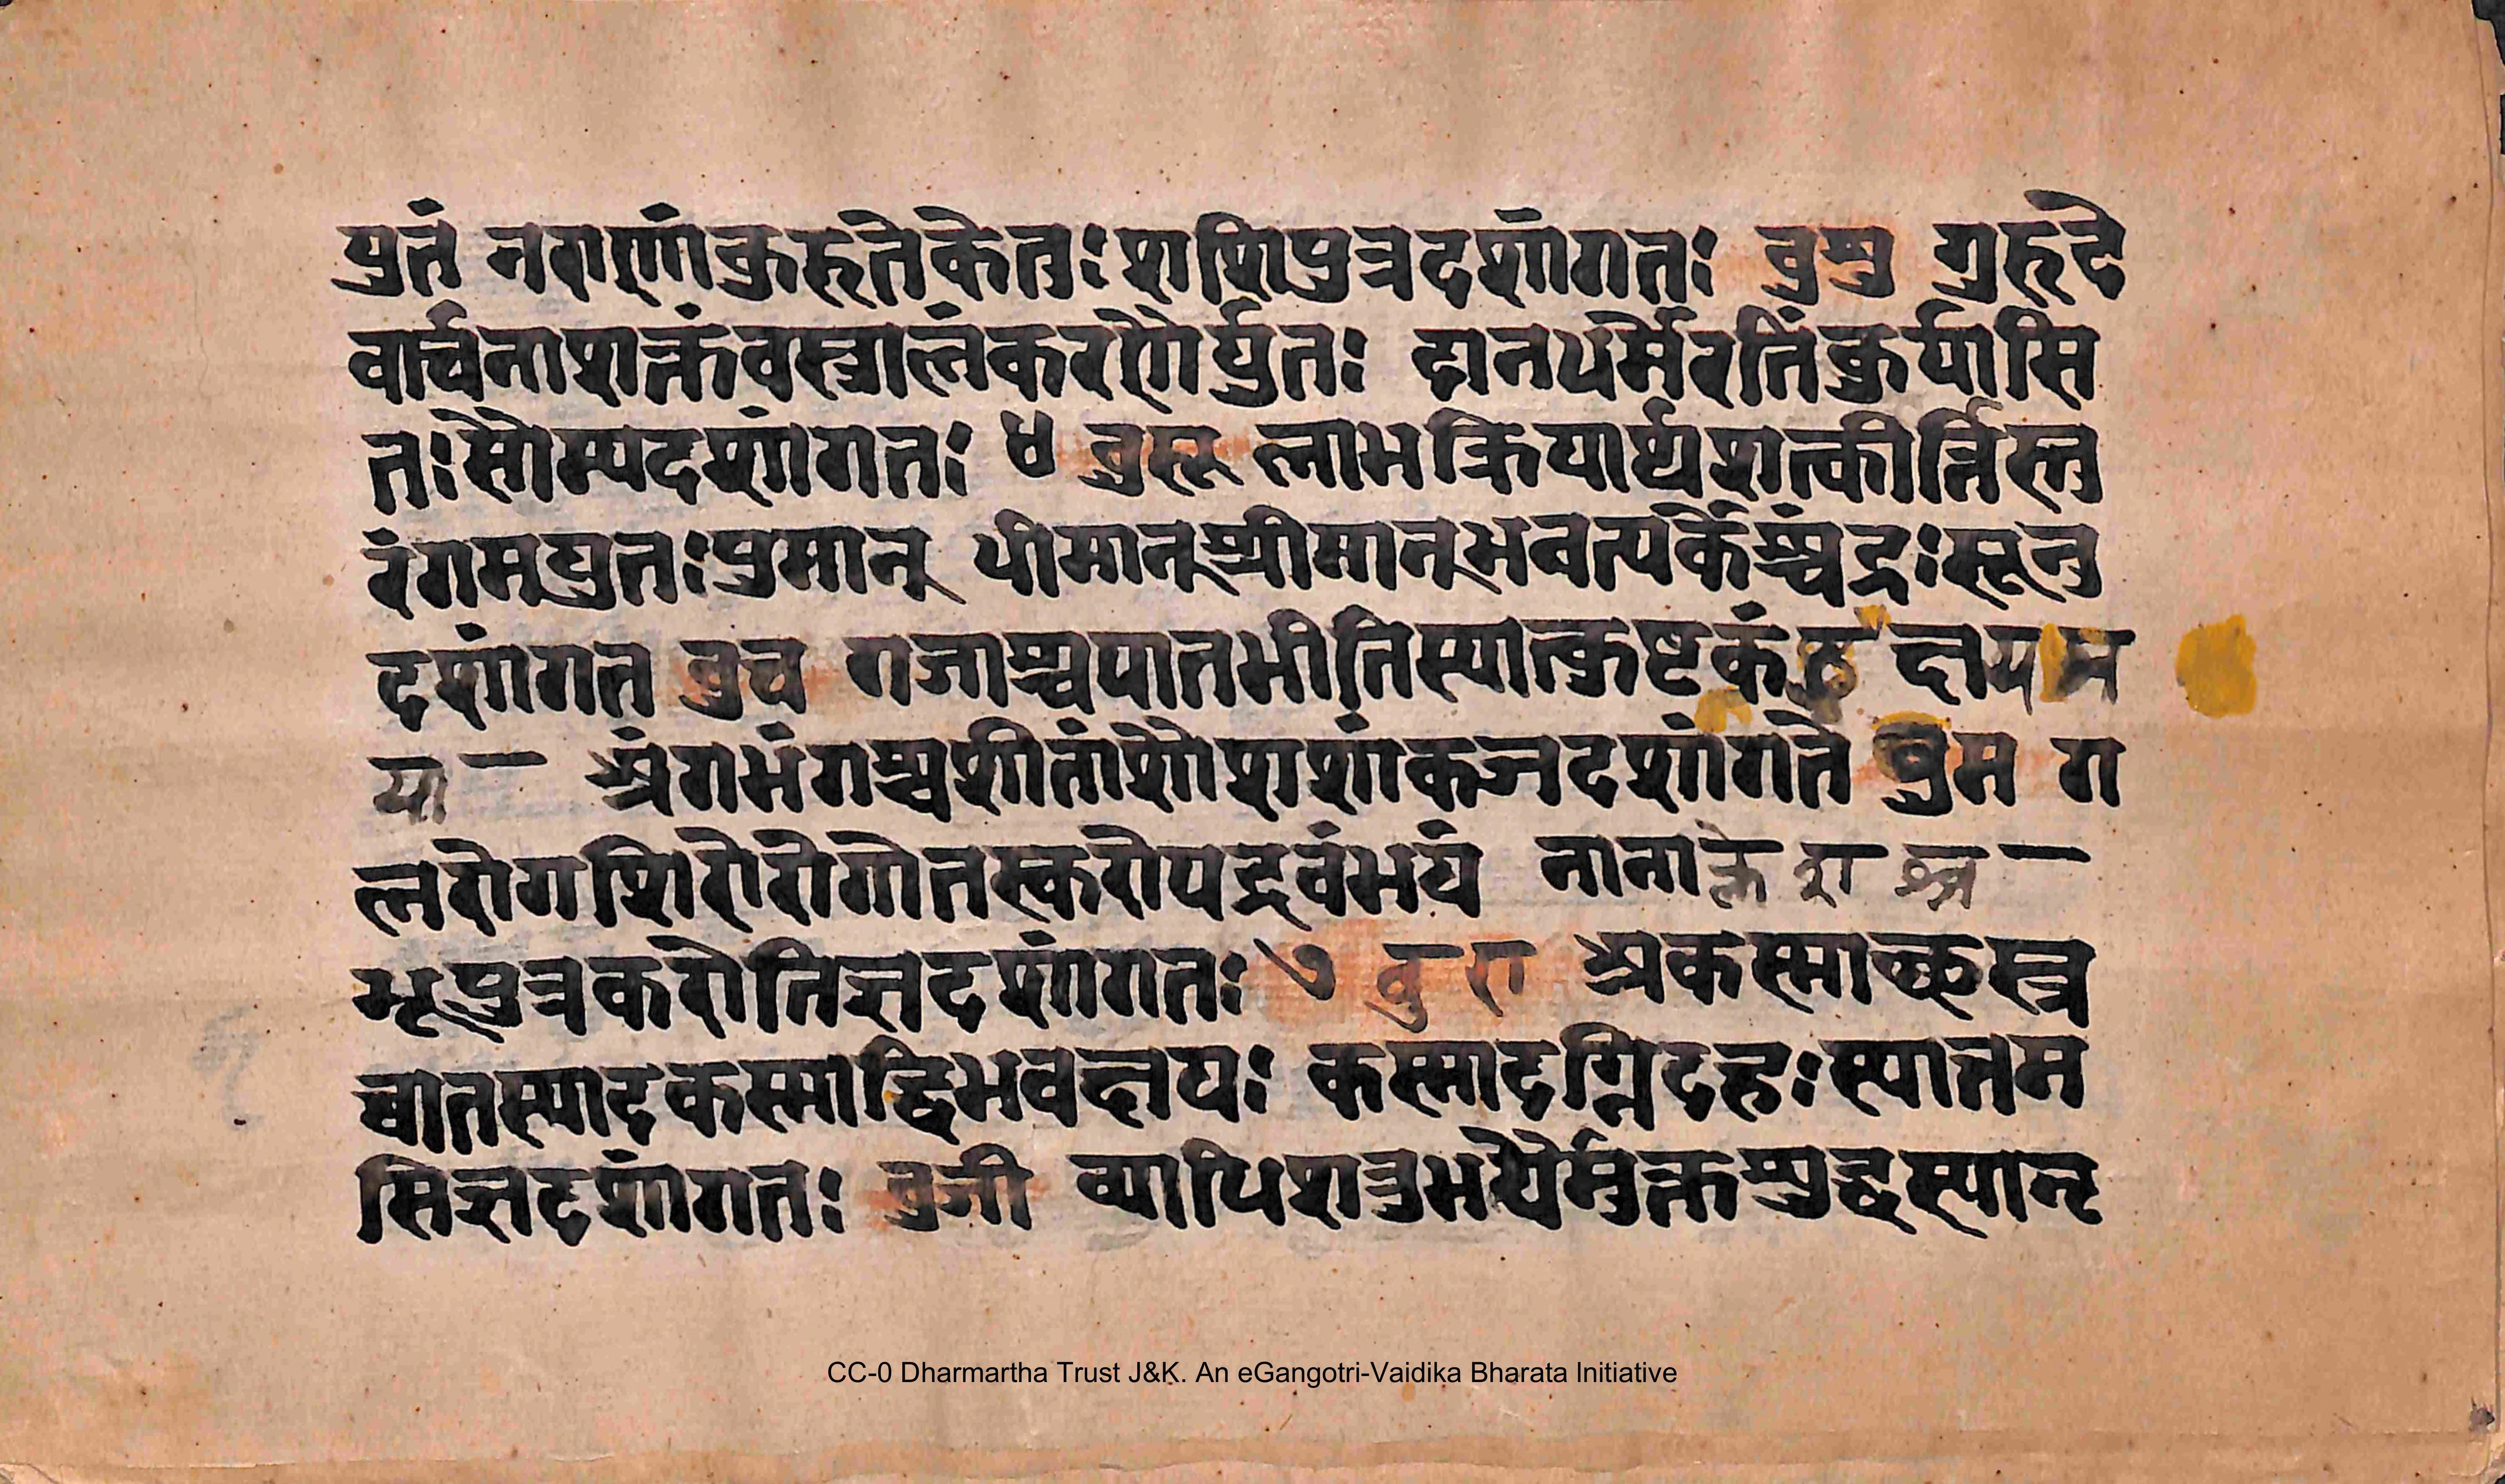 युतं नराणांकुरुतेकेतुःशशिपुत्रदशांगतः बुशु गुरुदे
वार्चनाशक्तंवस्त्रालंकरणैर्युतः दानधर्मेरतिंकुर्यासि
तःसौम्यदशांगतः ४ बुसू लाभक्रियार्थशत्कीर्त्तिस्तु
रंगमयुतःपुमान् धीमान्श्रीमान्भवत्यर्केश्चंद्रःसूनु
दशांगत बुच गजाश्चपातभीतिस्यात्कुष्टकं क्षयम
या श्रंगभंगश्चशीतांशौशशांकजदशांगते बुम ग
लरोगशिरोरोगोतस्करोपद्रवंभयं नानाक्लेशा
भूपुत्रकरोतिज्ञदशांगतः ७ बुरा अकस्माच्छस्त्र
घातस्यादकस्माद्विभवक्षयः कस्मादग्निदहःस्यात्तम
सिज्ञदशांगतः बुजी व्याधिशत्रुभयैर्मुक्तश्रुद्धस्यानृ
CC-0 Dharmartha Trust J&K. An eGangotri-Vaidika Bharata Initiative